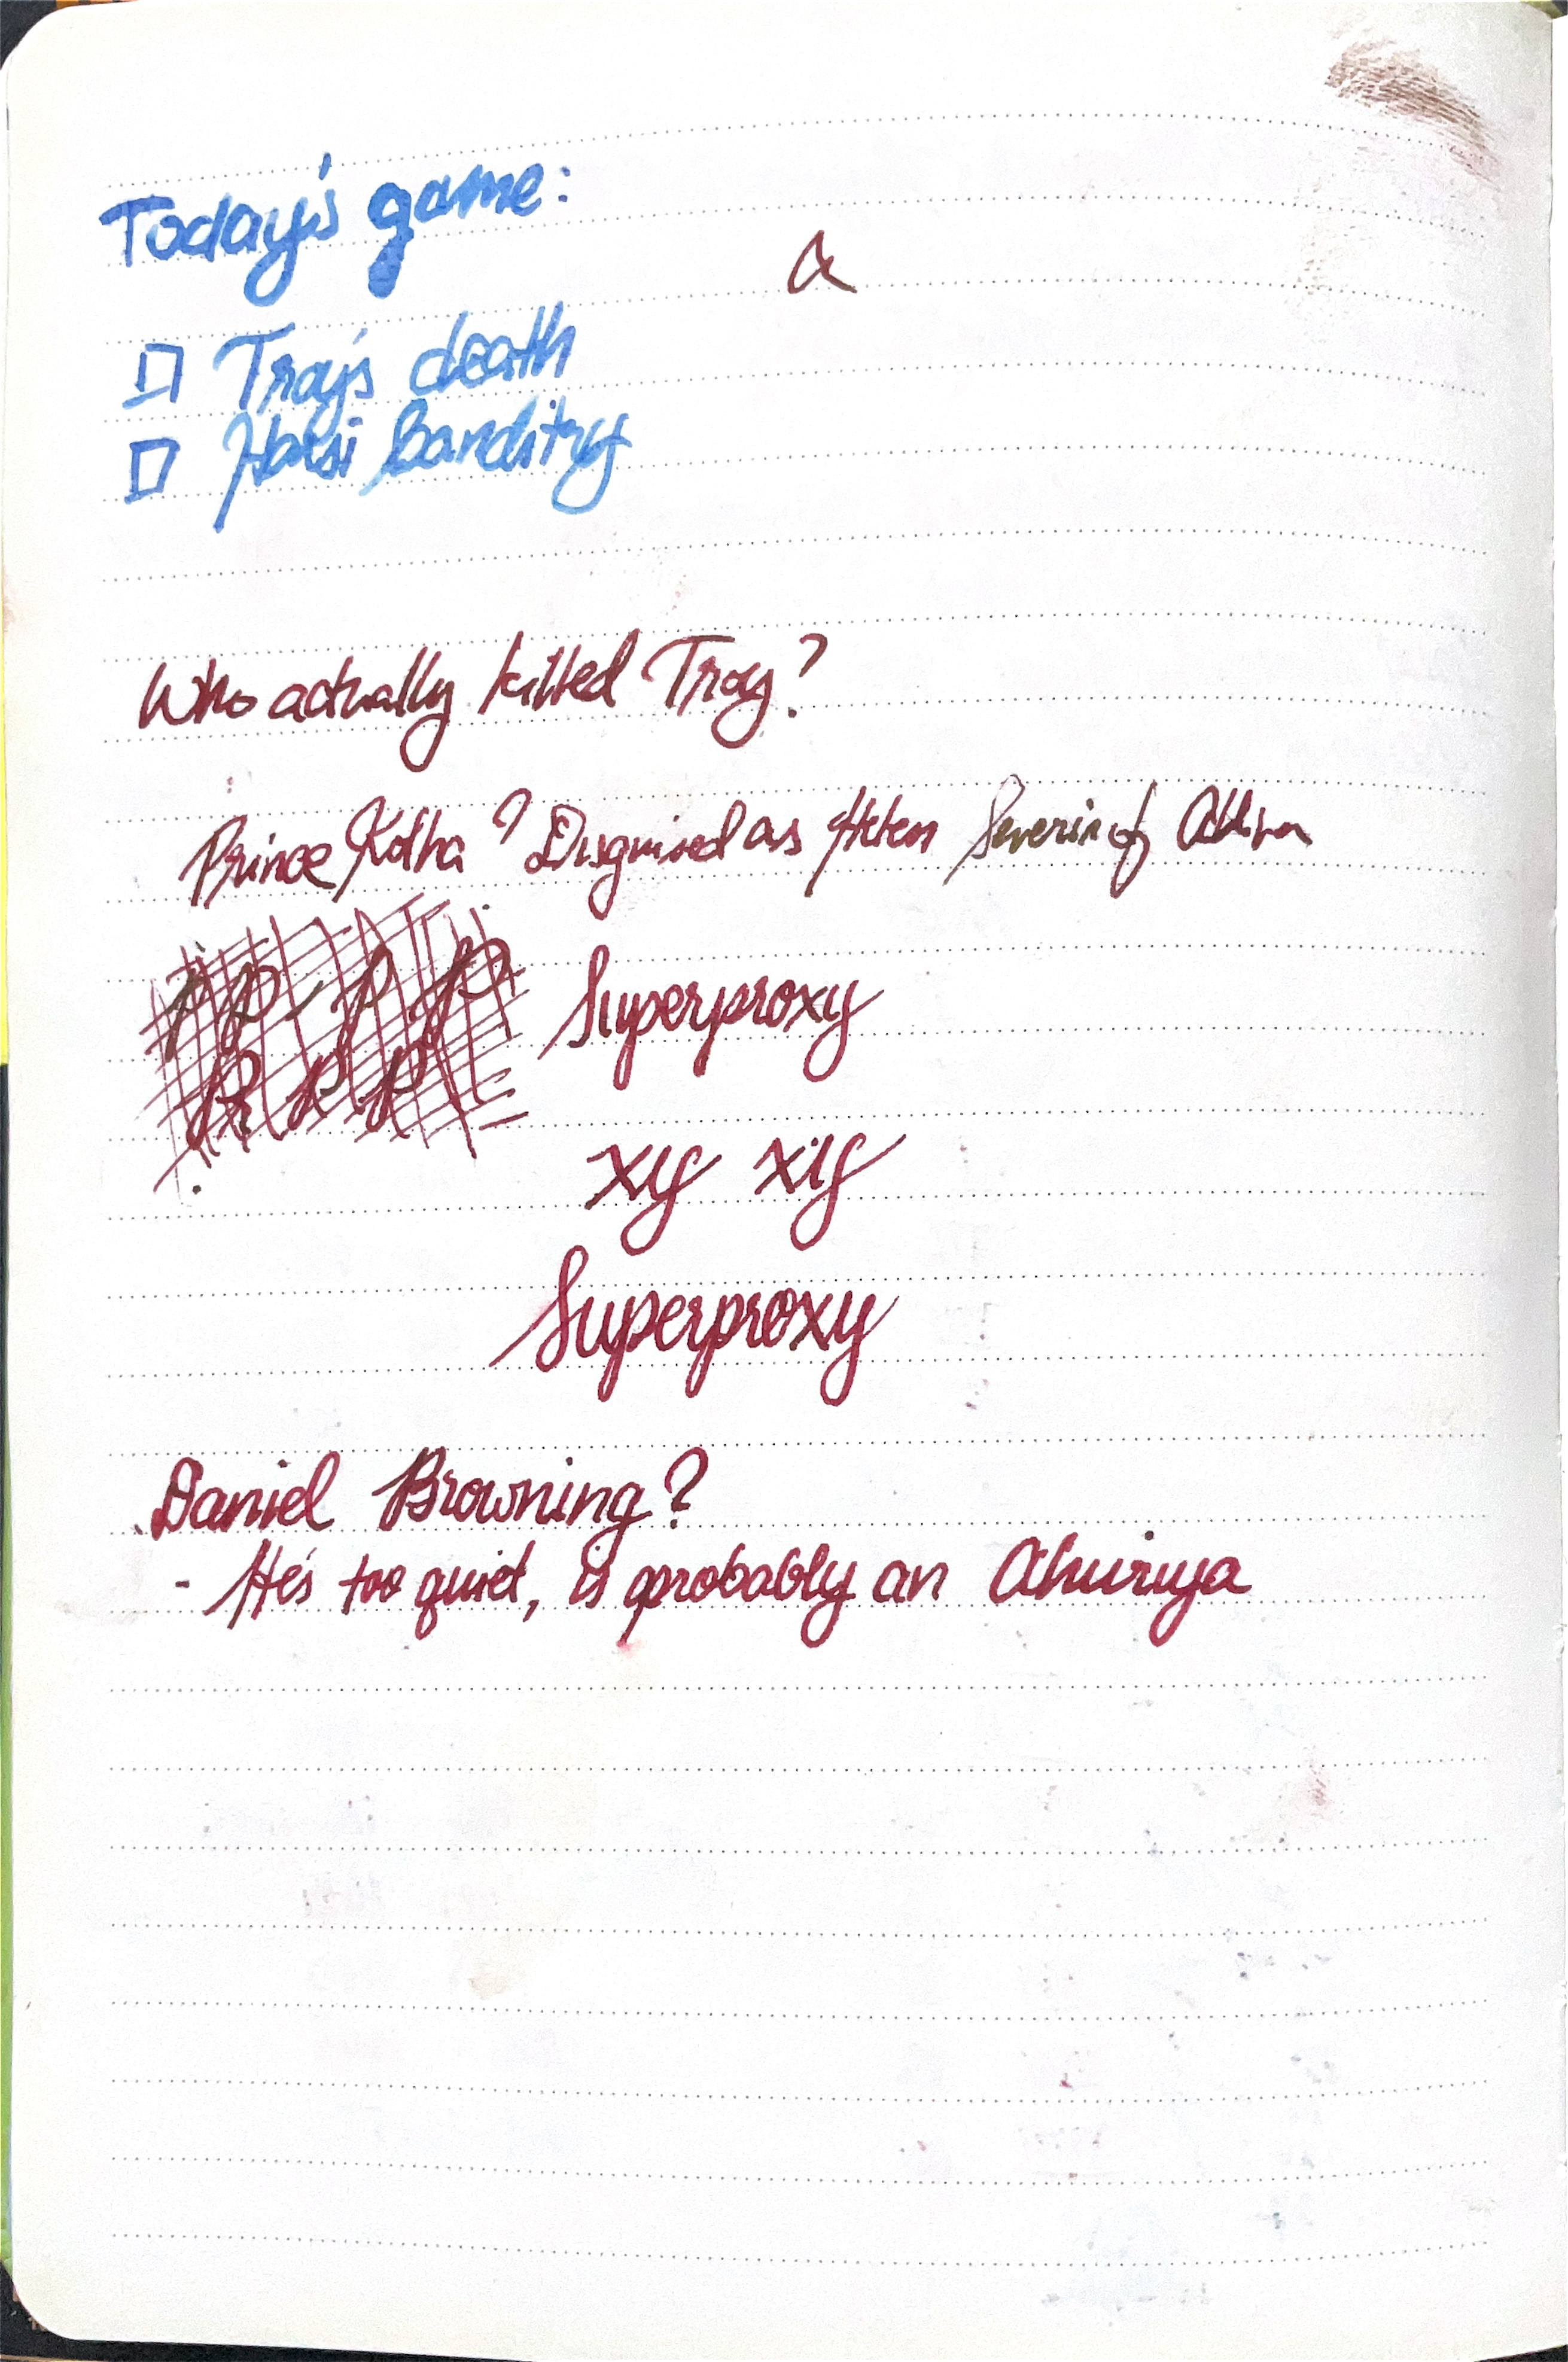 Today's game:
a
□ Troy's death
□ banditry
Who actually killed Troy?
Prince Kotha? Disguised as Helen Severin of
P P P P
Superproxy
P P P
xy xy
Superproxy
Daniel Browning?
- He's too quiet, is probably an Ahuriya